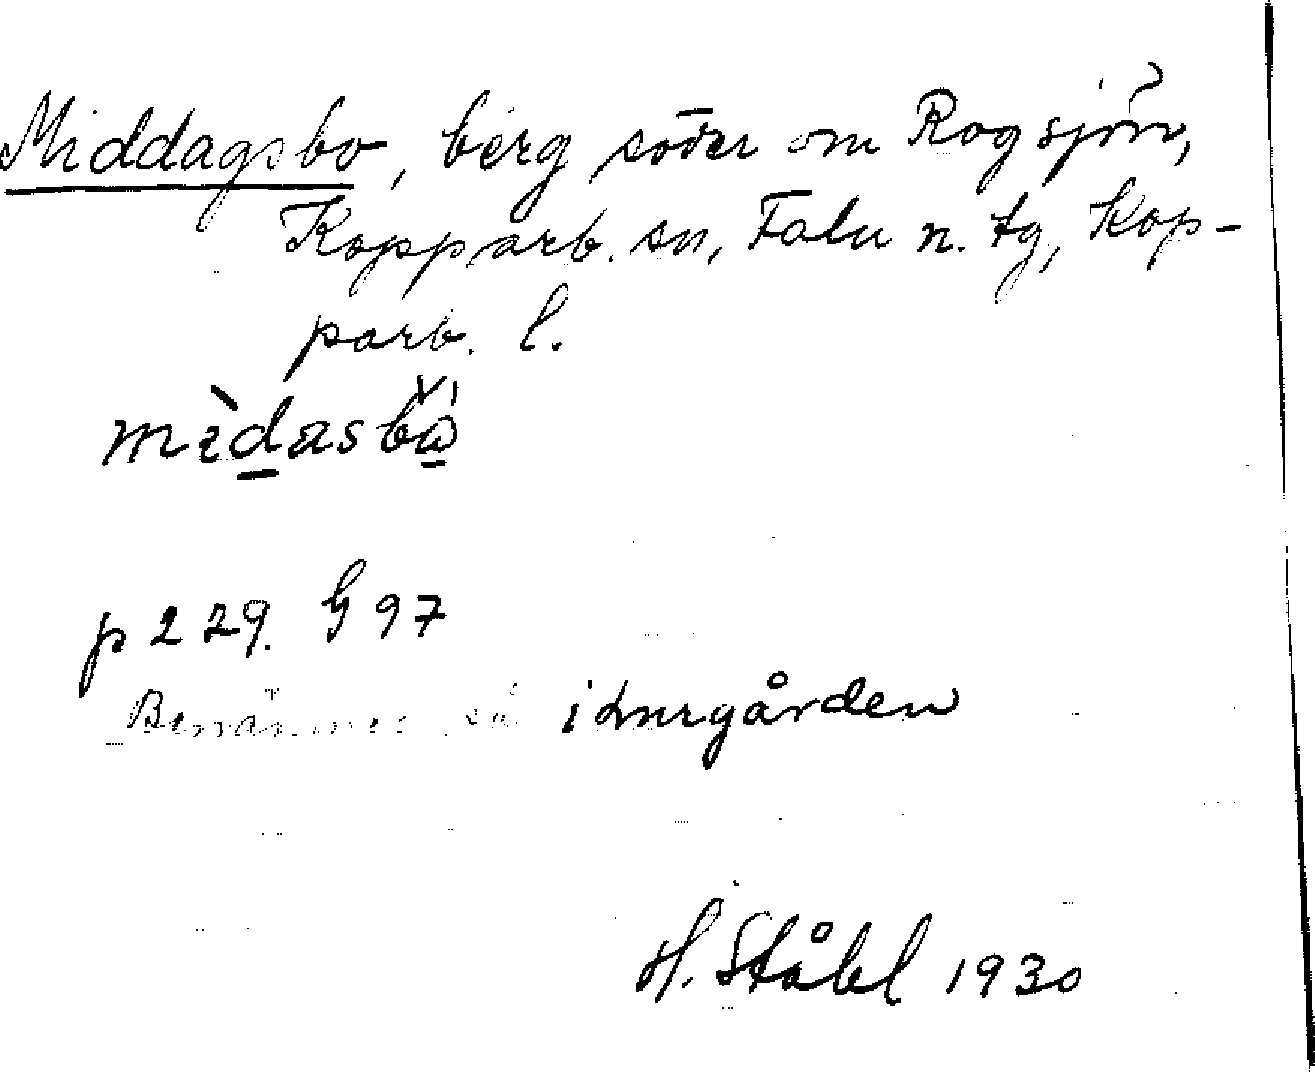 Middagsbo, berg söder om Rogsjön,
Kopparb. sn, Falu n. tg, Kop-
parb. l.
p 229. G 97
Benämnes så i Lurgården
H. Ståhl 1930